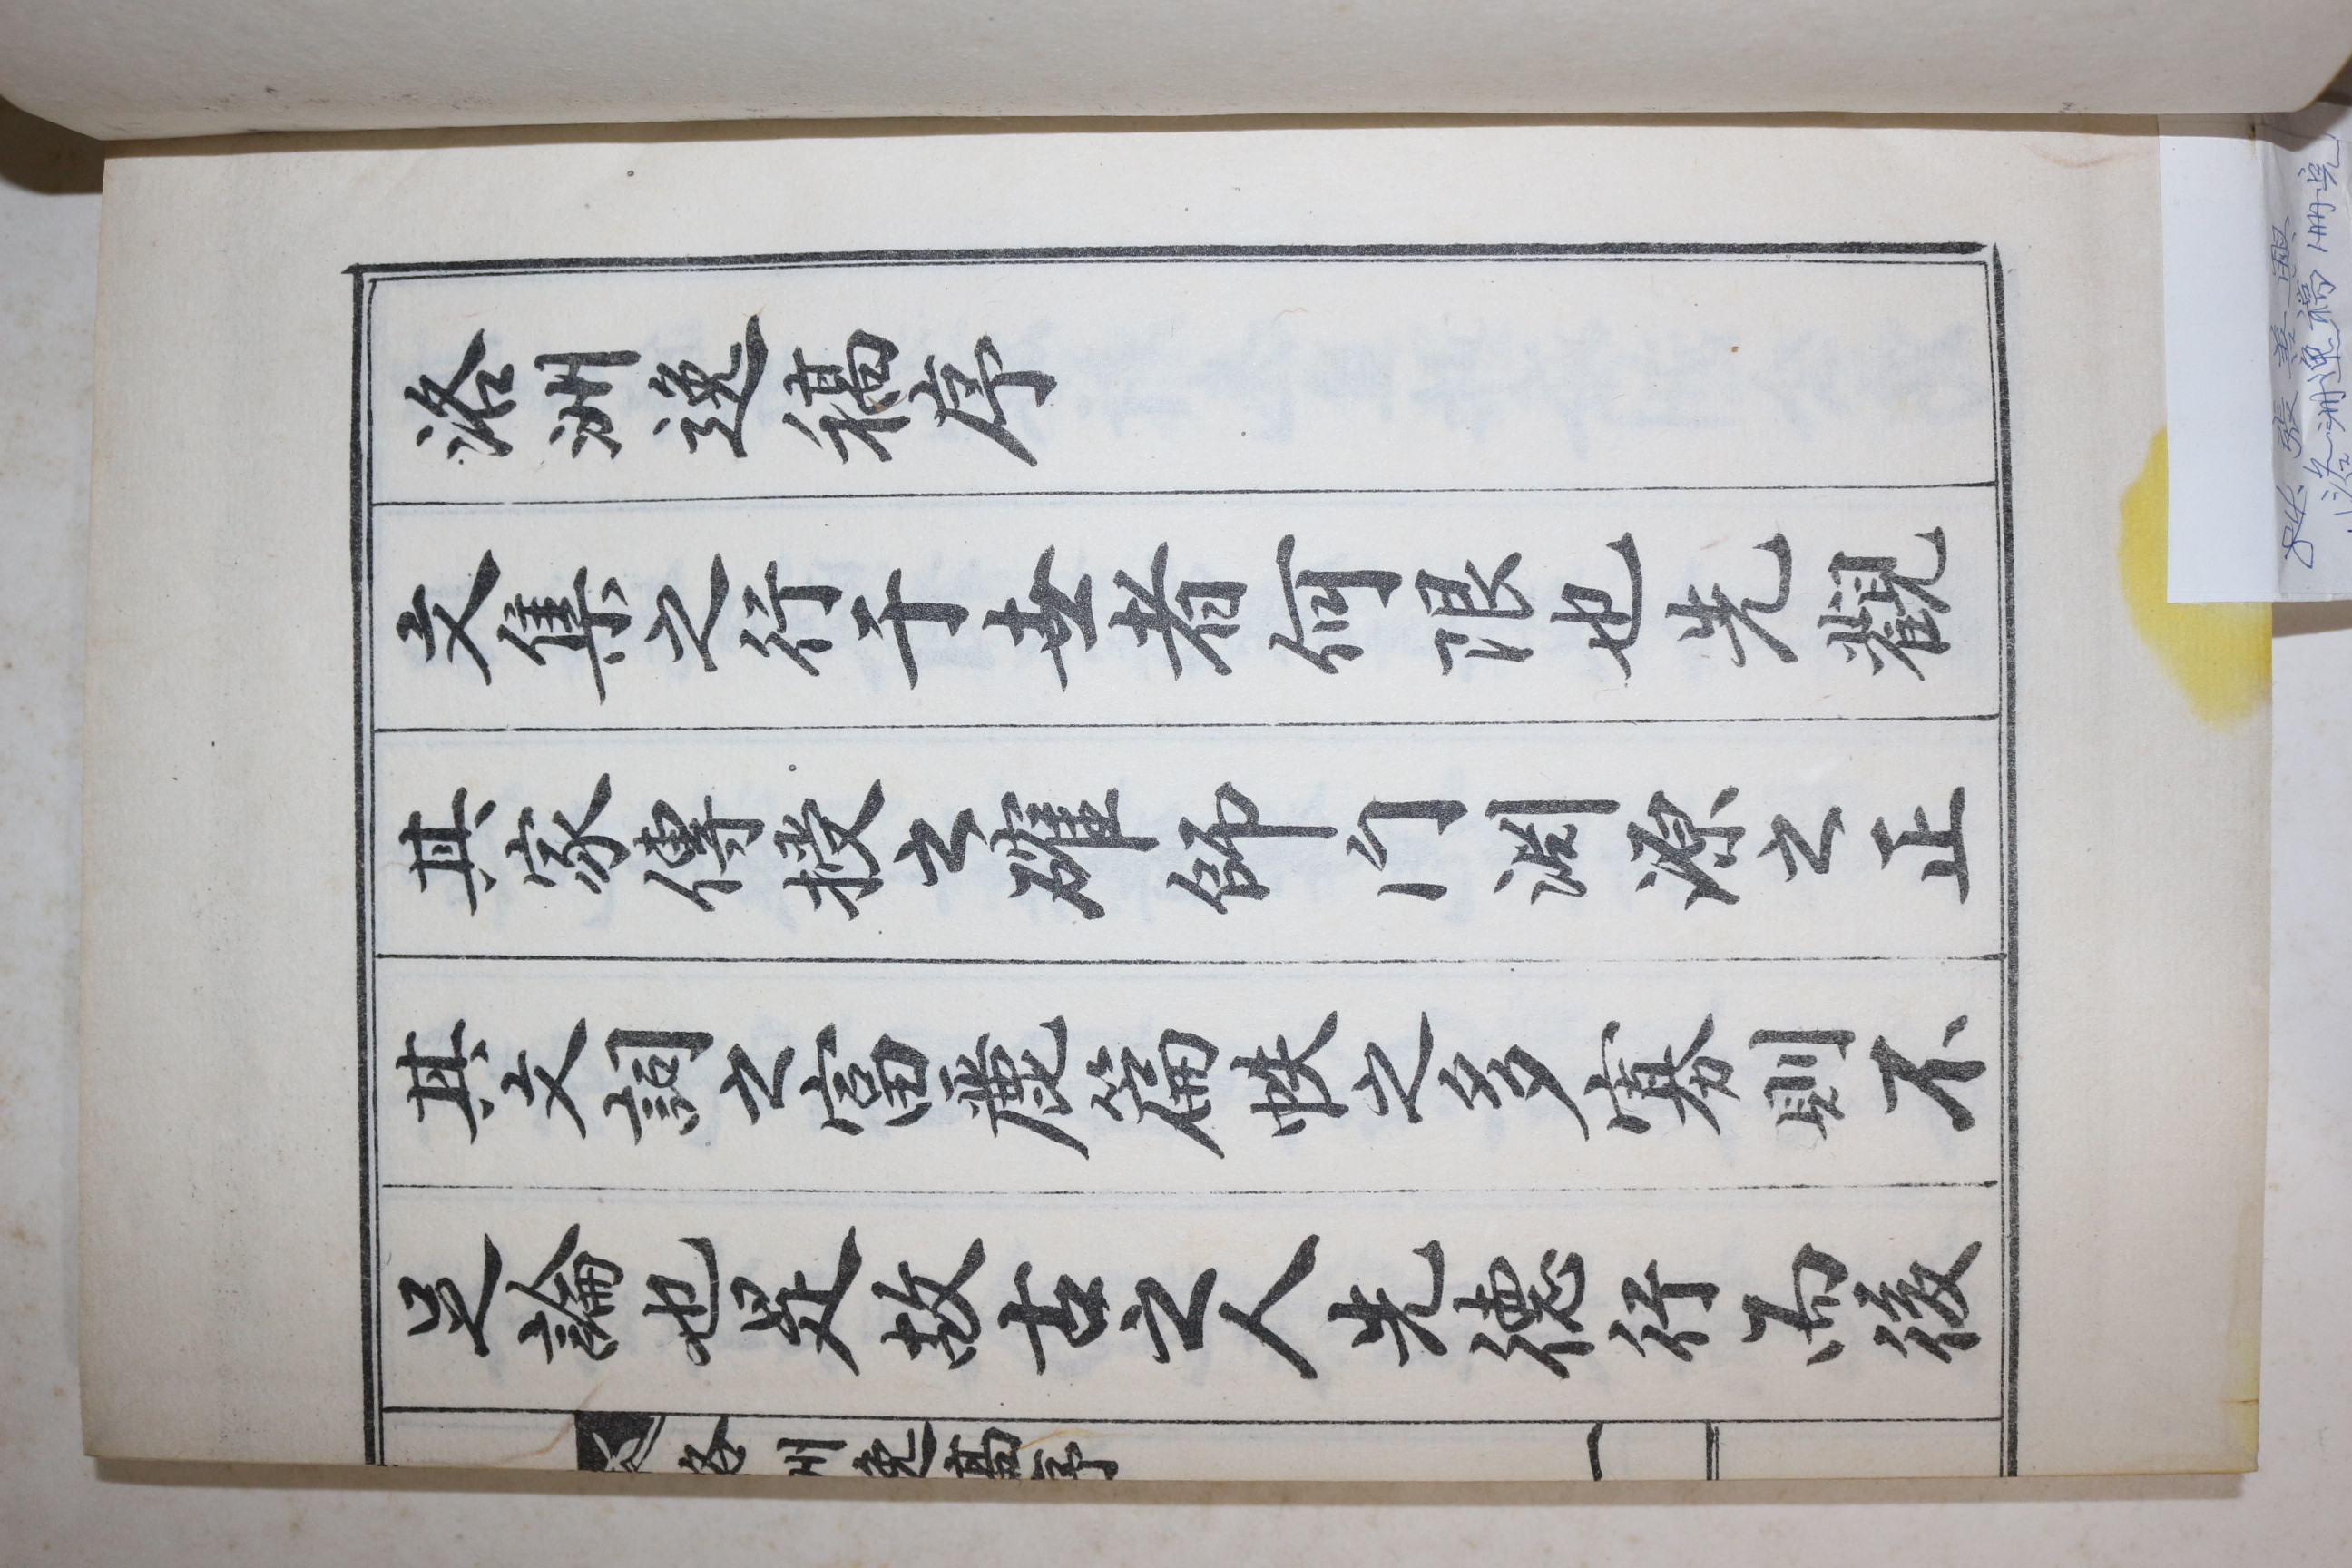 洛洲逸稿序
文集之行于世者何限也先觀
其家傳授之確師门淵源之正
其文詞之富麗篇帙之多寡則不
足論也是故古之人先德行而後
洛洲逸稿序
一
84. 張善興
洛洲逸稿